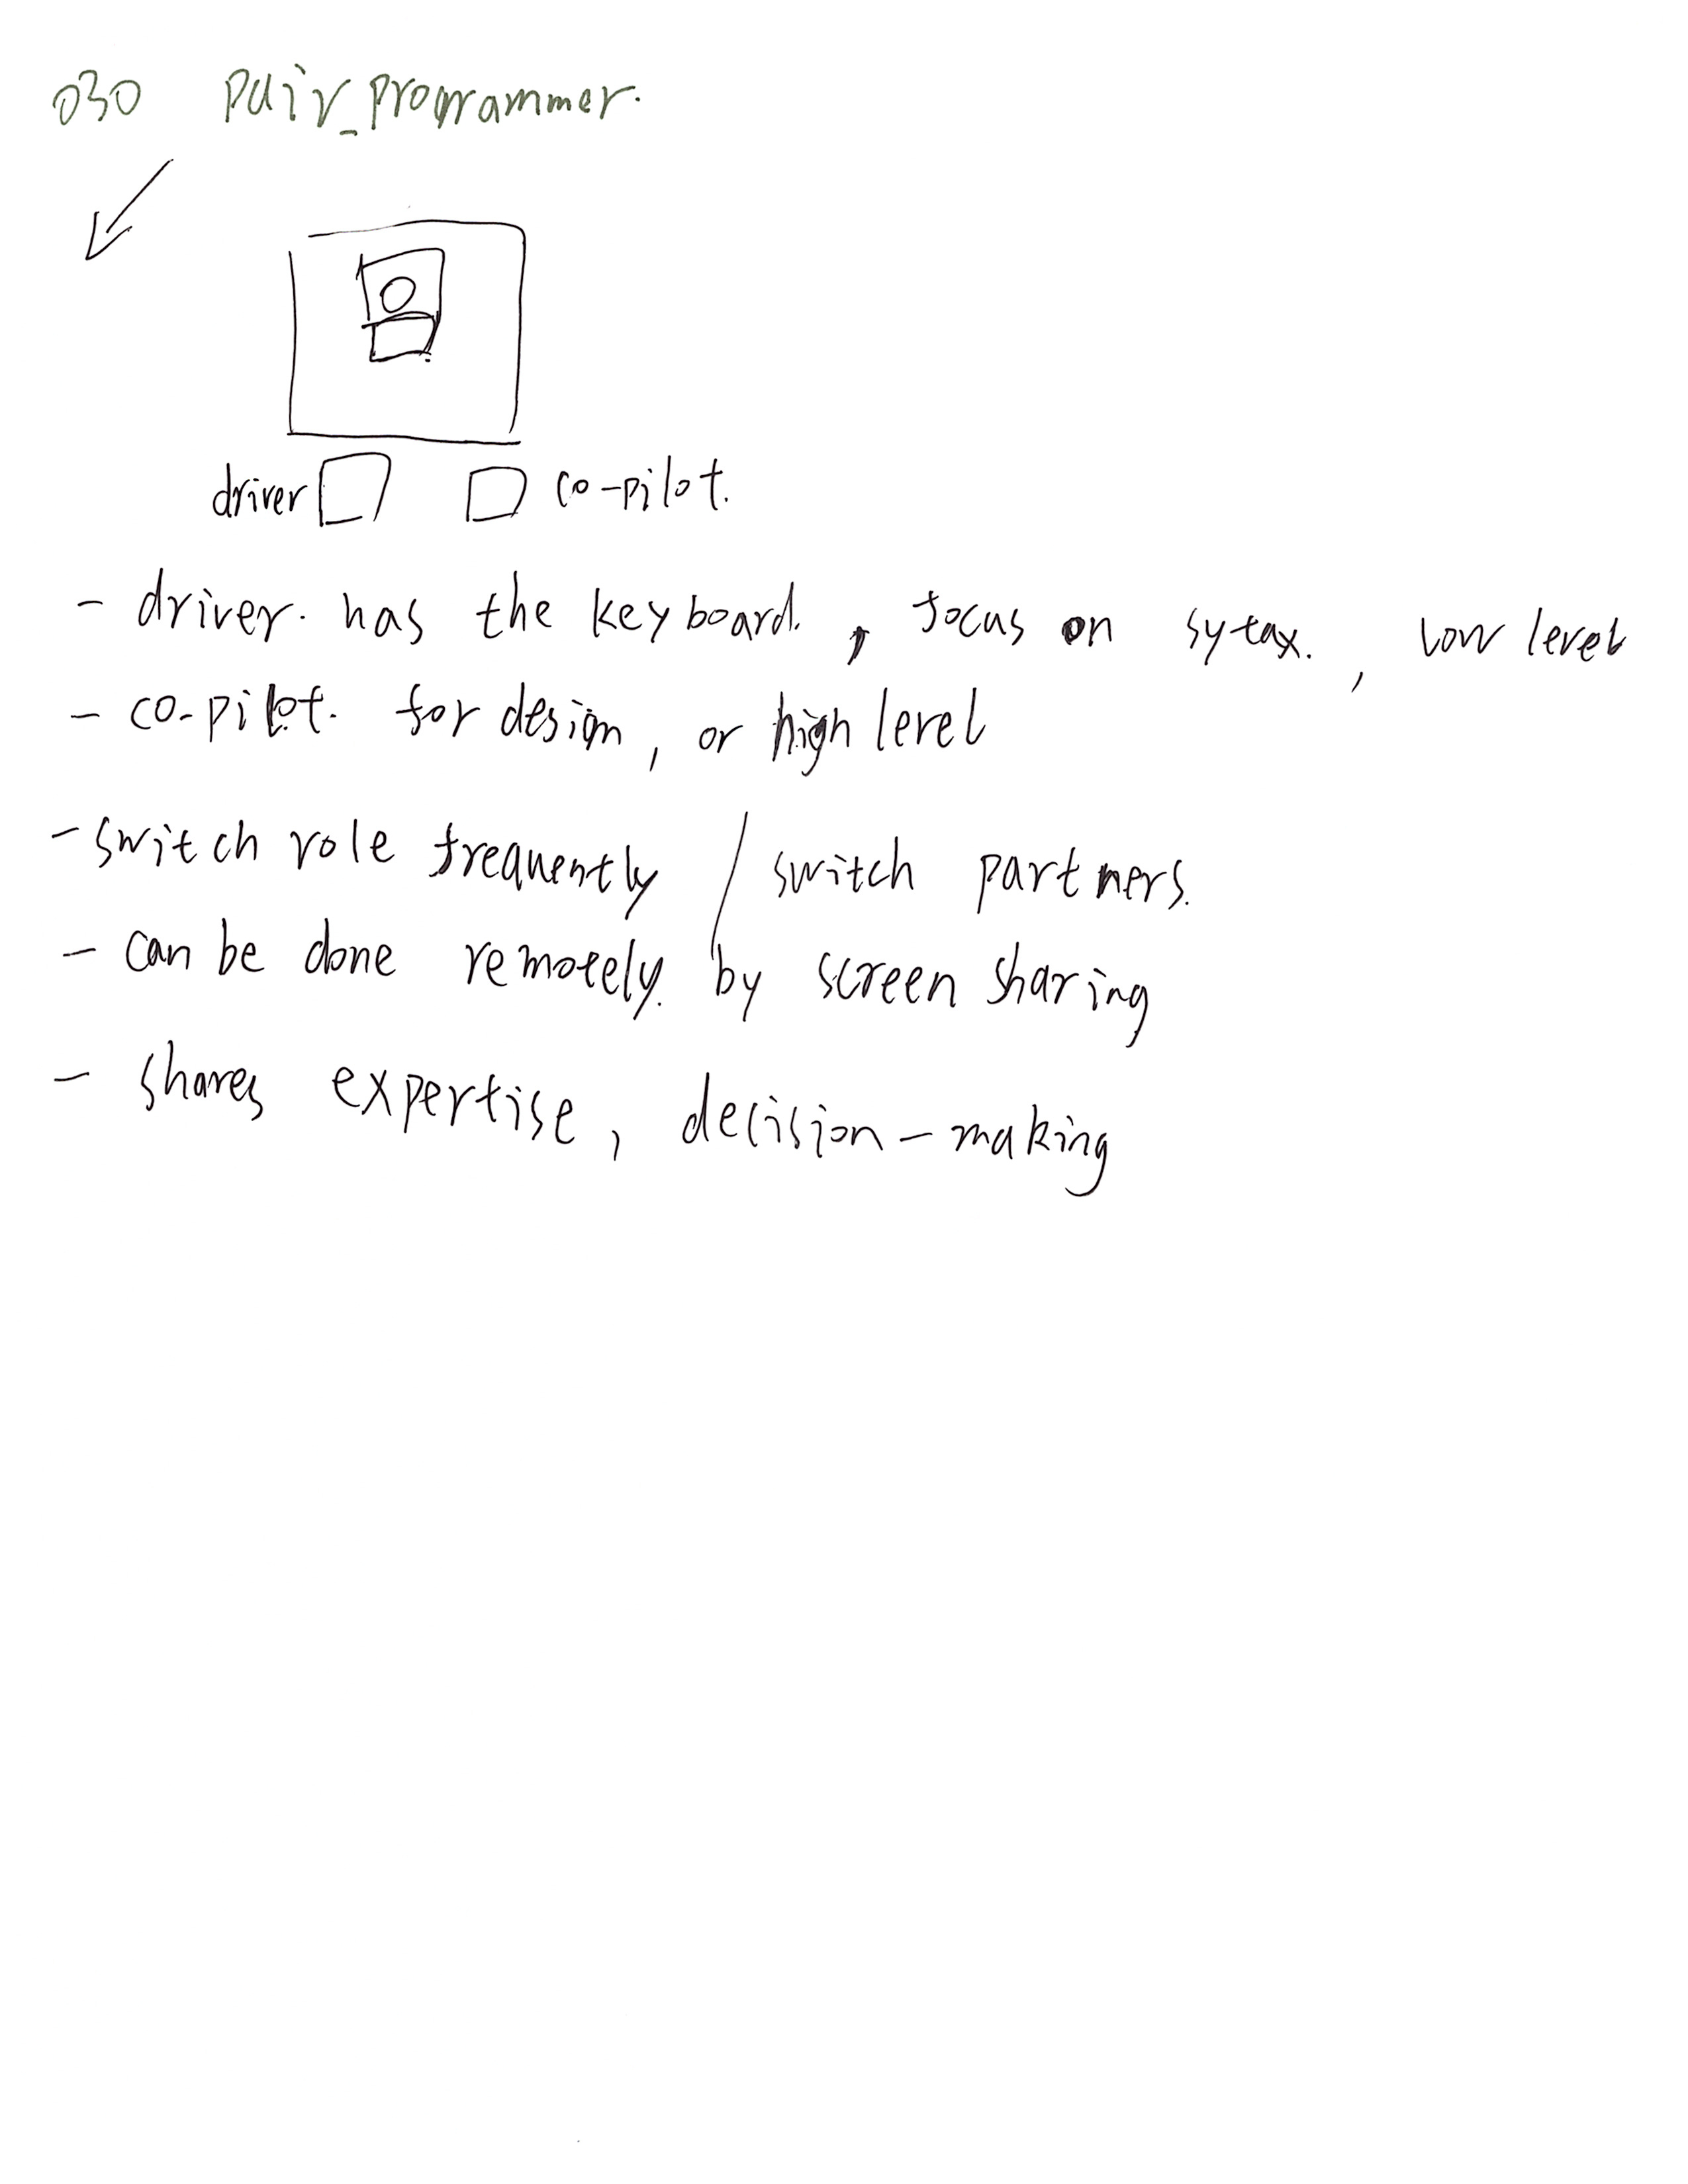 030 Pair_Programmer.
driver co-pilot.
- driver. has the keyboard. , focus on sytax. , low level
- co-pilot. for design, or high level
- switch role frequently / switch partners.
- can be done remotely. by screen sharing
- shares expertise, decision-making